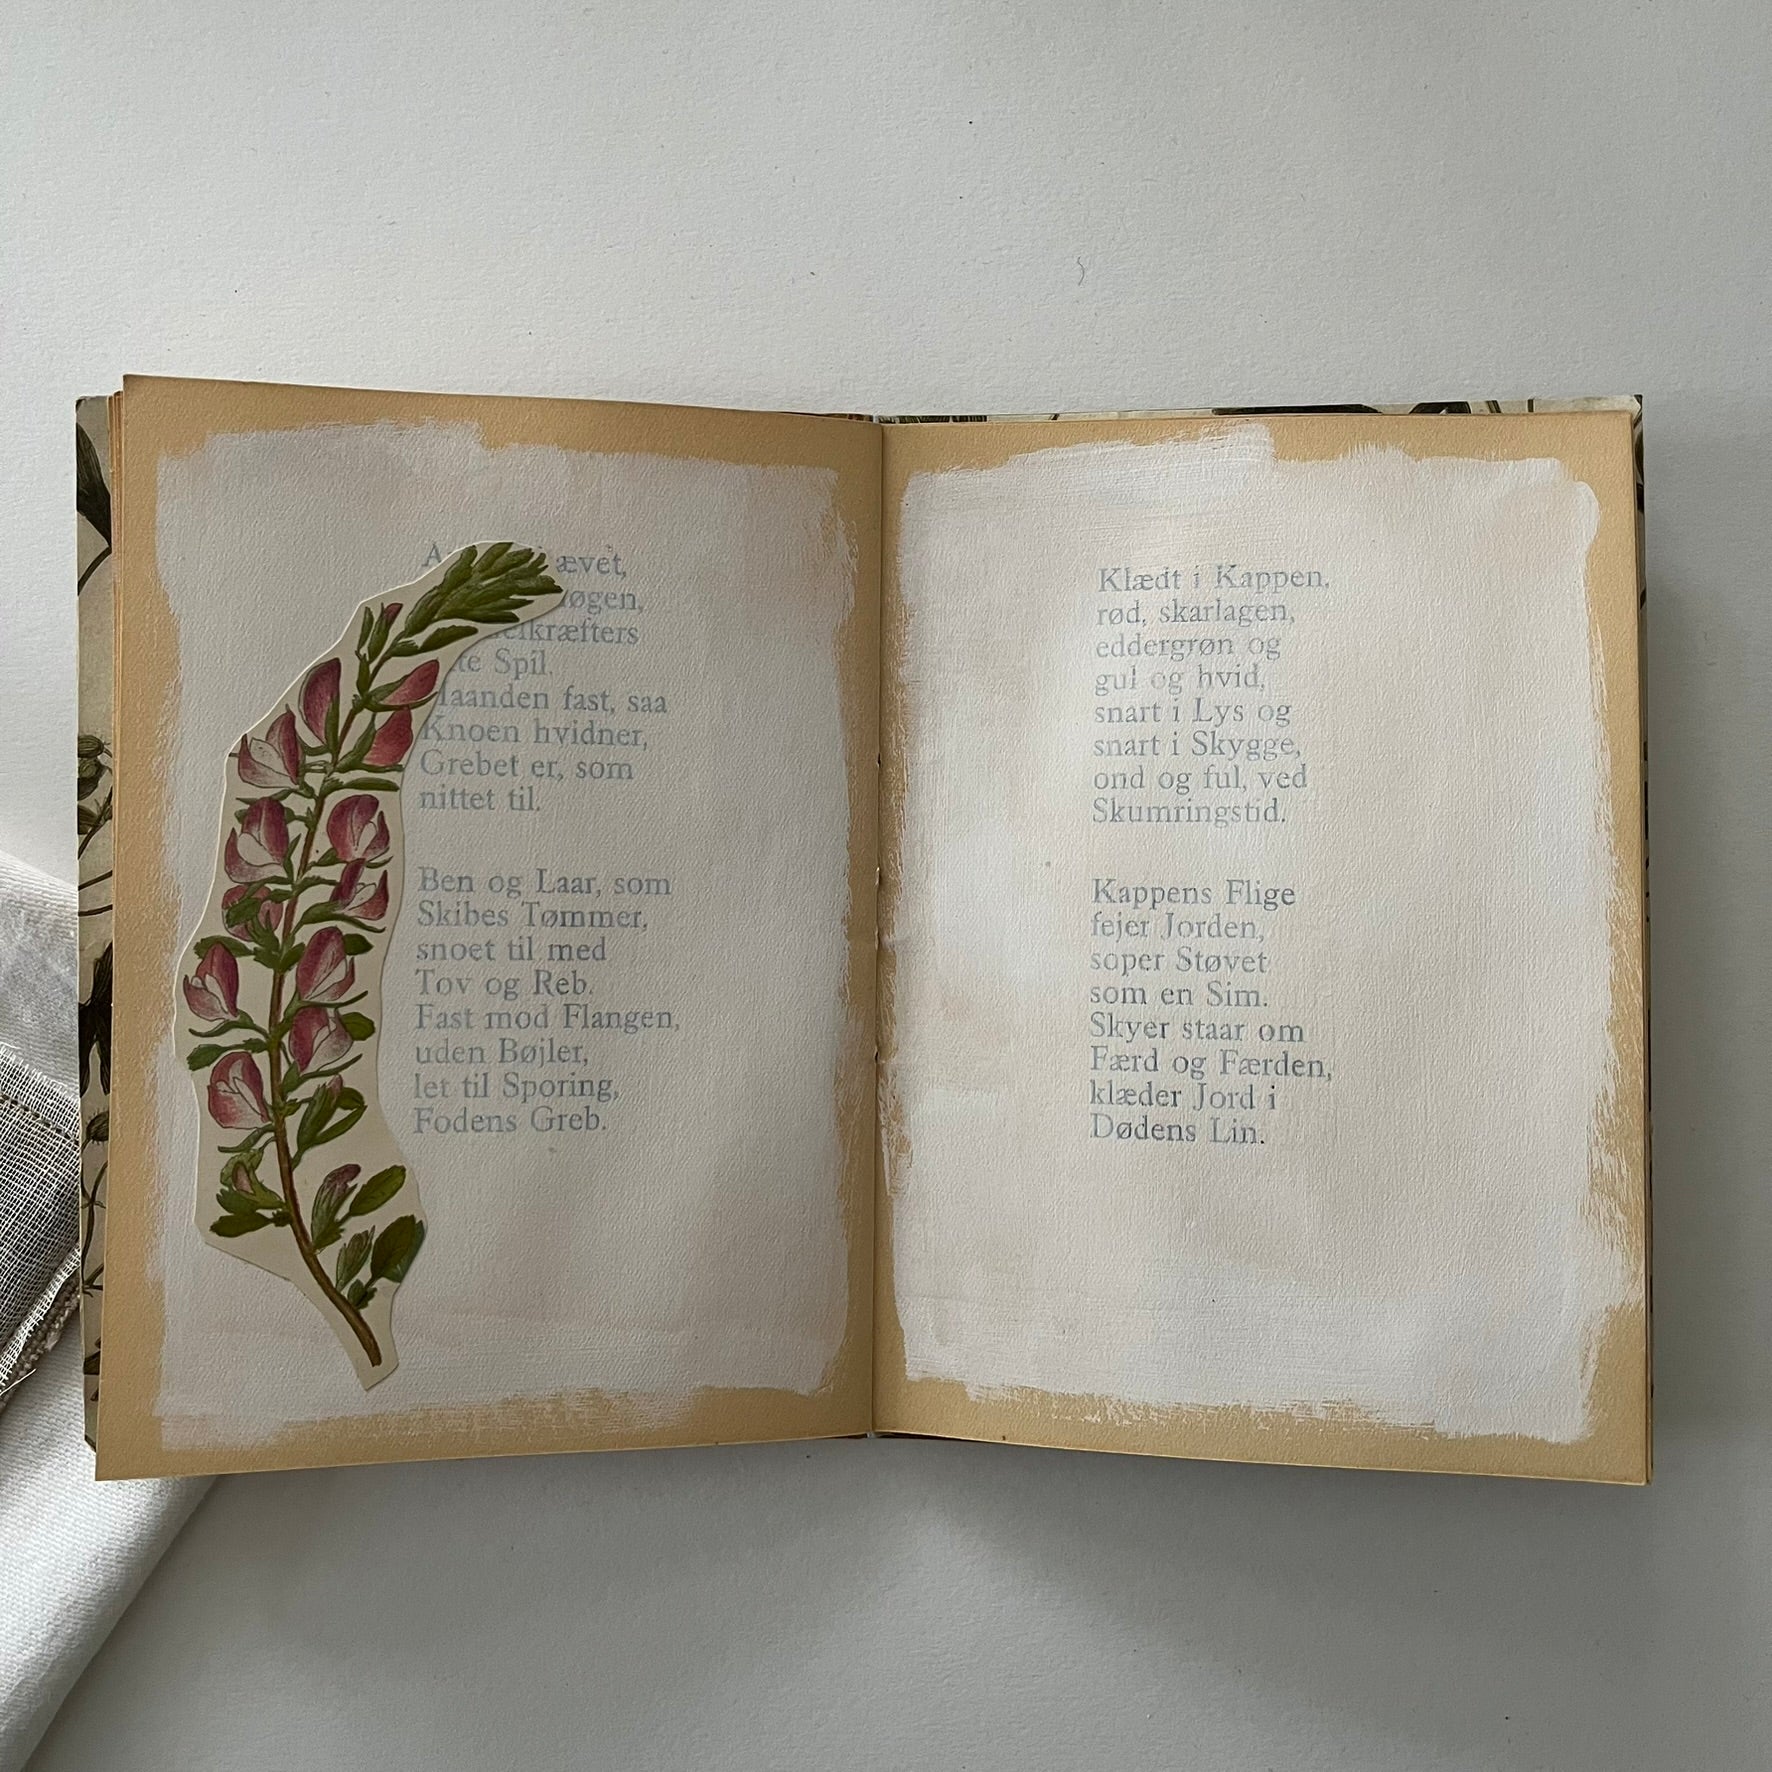 ævet,
Spil.
fast, saa
Knoen hvidner,
Grebet er, som
nittet til.
Ben og Laar, som
Skibes Tømmer,
snoet til med
Tov og Reb.
Fast mod Flangen,
uden Bøjler,
let til Sporing,
Fodens Greb.
Klædt i Kappen,
rød, skarlagen,
eddergrøn og
gul og hvid,
snart i Lys og
snart i Skygge,
ond og ful, ved
Skumringstid.
Kappens Flige
fejer Jorden,
soper Støvet
som en Sim.
Skyer staar om
Færd og Færden,
klæder Jord i
Dødens Lin.